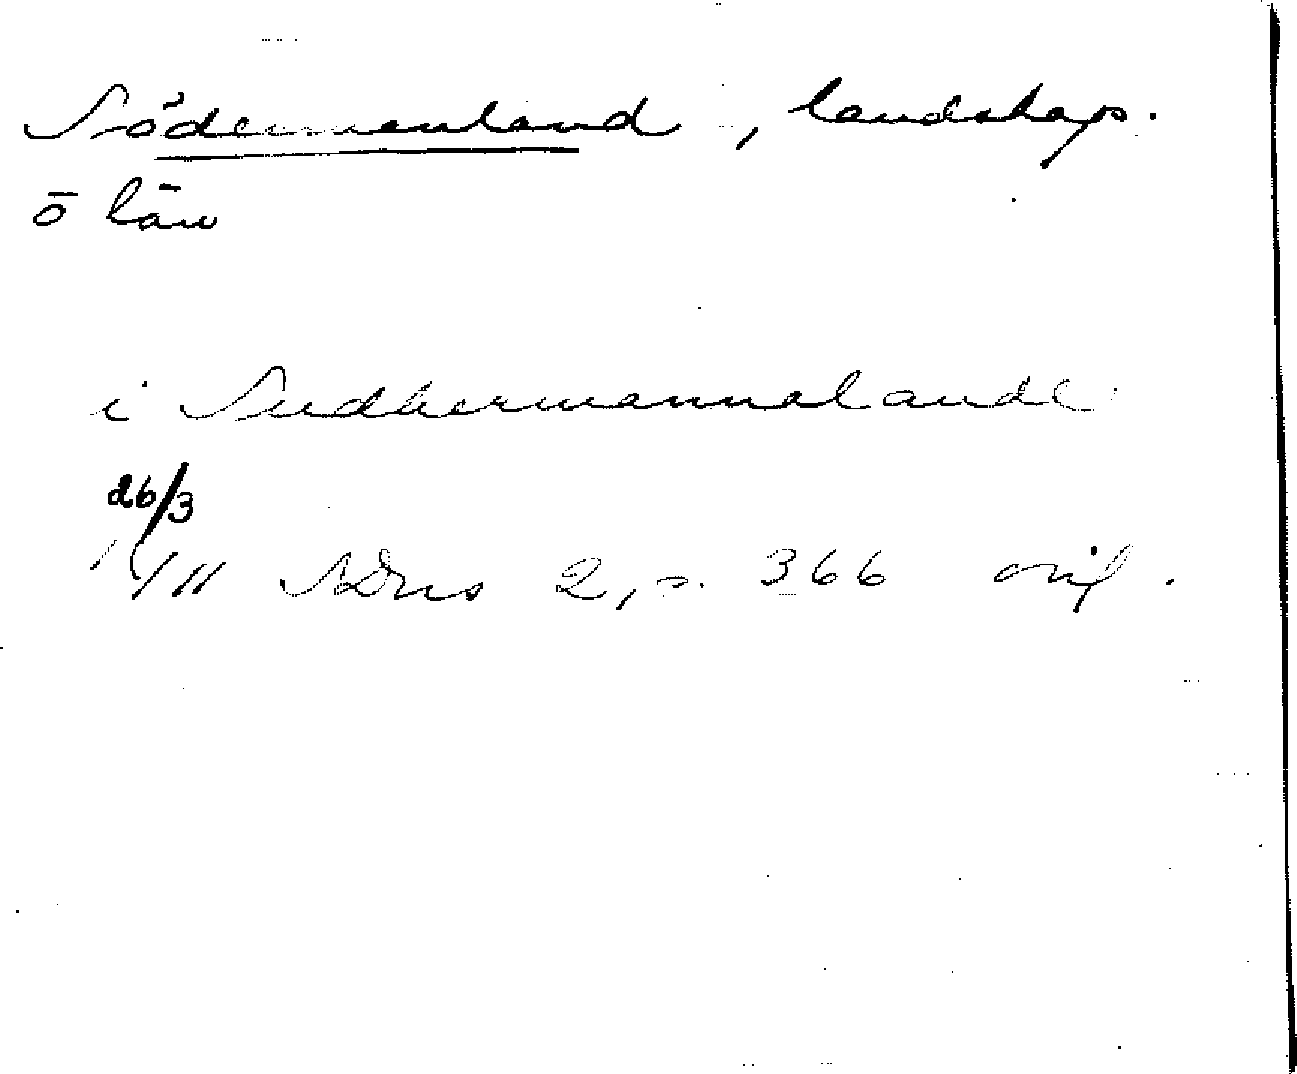 Södermanland, landskap.
ō län
i Sudhermannalande
26/3
1411 SDns 2, s. 366 orig.